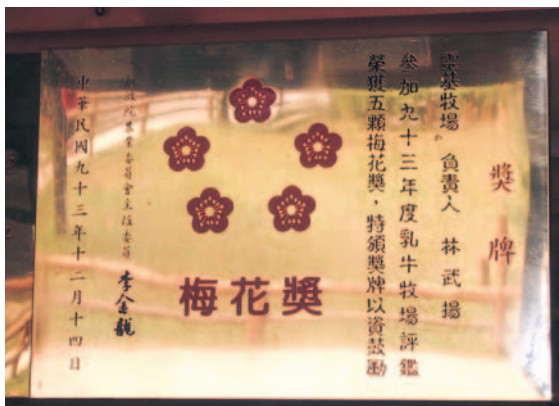 獎牌
崇基牧場 負責人 林武揚
參加九十三年度乳牛牧場評鑑
榮獲五顆梅花獎，特頒獎牌以資鼓勵
梅花獎
行政院農業委員會主任委員 李金龍
中華民國九十三年十二月十四日